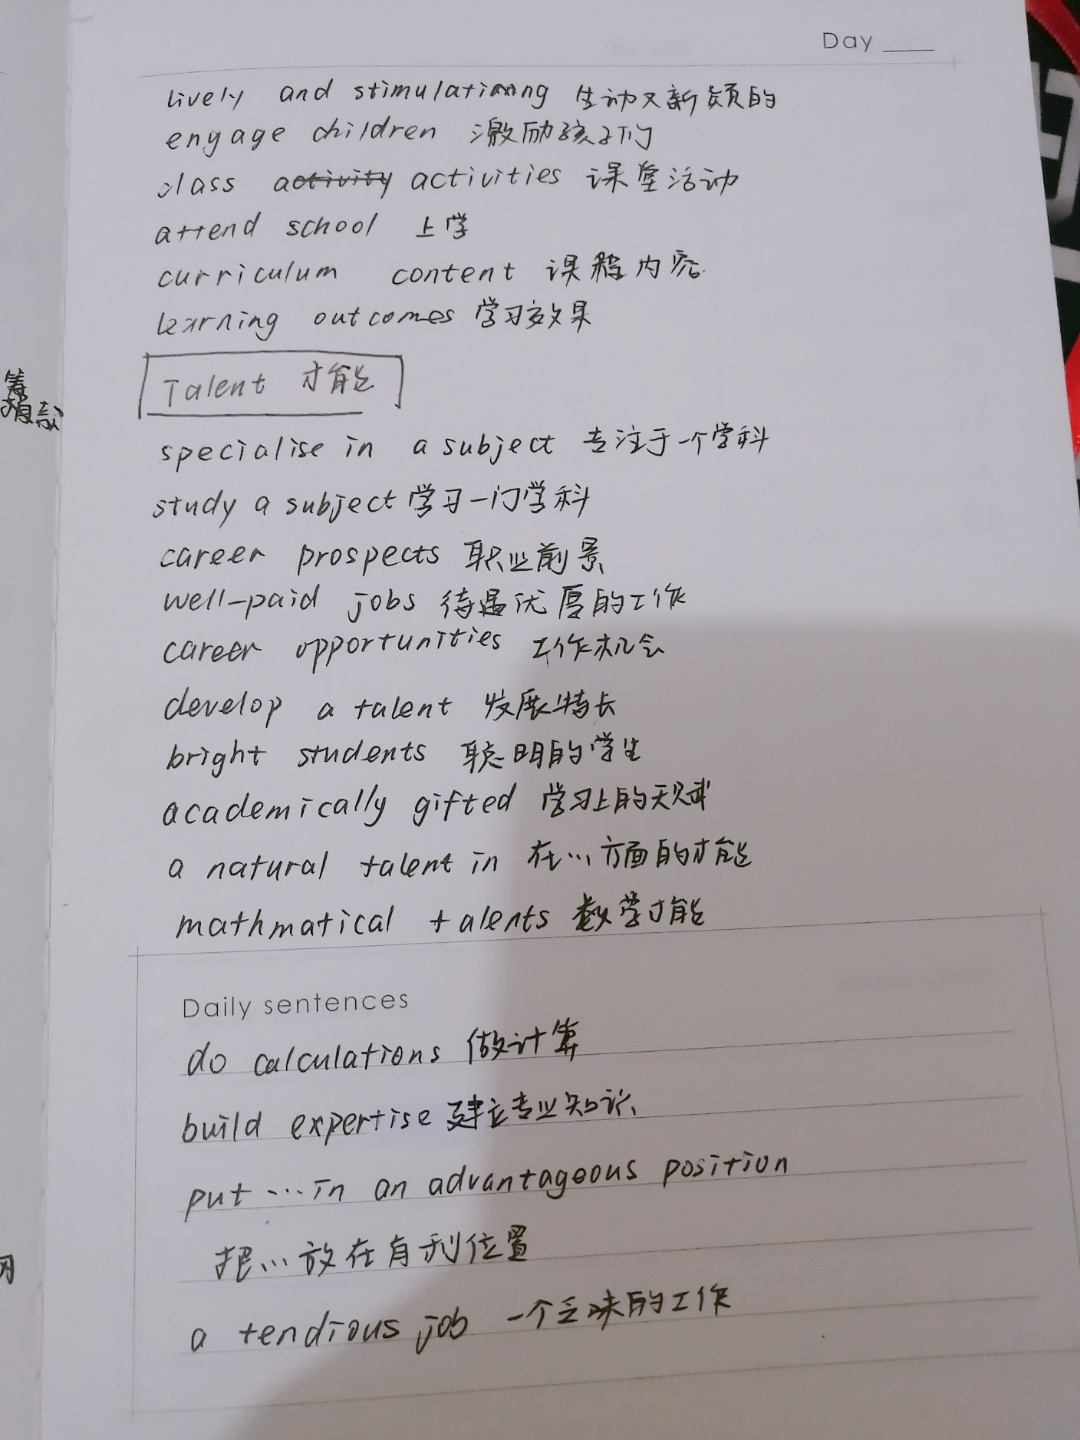 Day
lively and stimulationng 生动又新颖的
engage children 激励孩子们
class activity activities 课堂活动
attend school 上学
curriculum content 课程内容
learning outcomes 学习效果
Talent 才能
specialise in a subject 专注于一个学科
study a subject 学习一门学科
career prospects 职业前景
well-paid jobs 待遇优厚的工作
career opportunities 工作机会
develop a talent 发展特长
bright students 聪明的学生
academically gifted 学习上的天赋
a natural talent in 在…方面的才能
mathmatical talents 数学才能
Daily sentences
do calculations 做计算
build expertise 建立专业知识
put …in an advantageous position
把…放在有利位置
a tendious job 一个乏味的工作